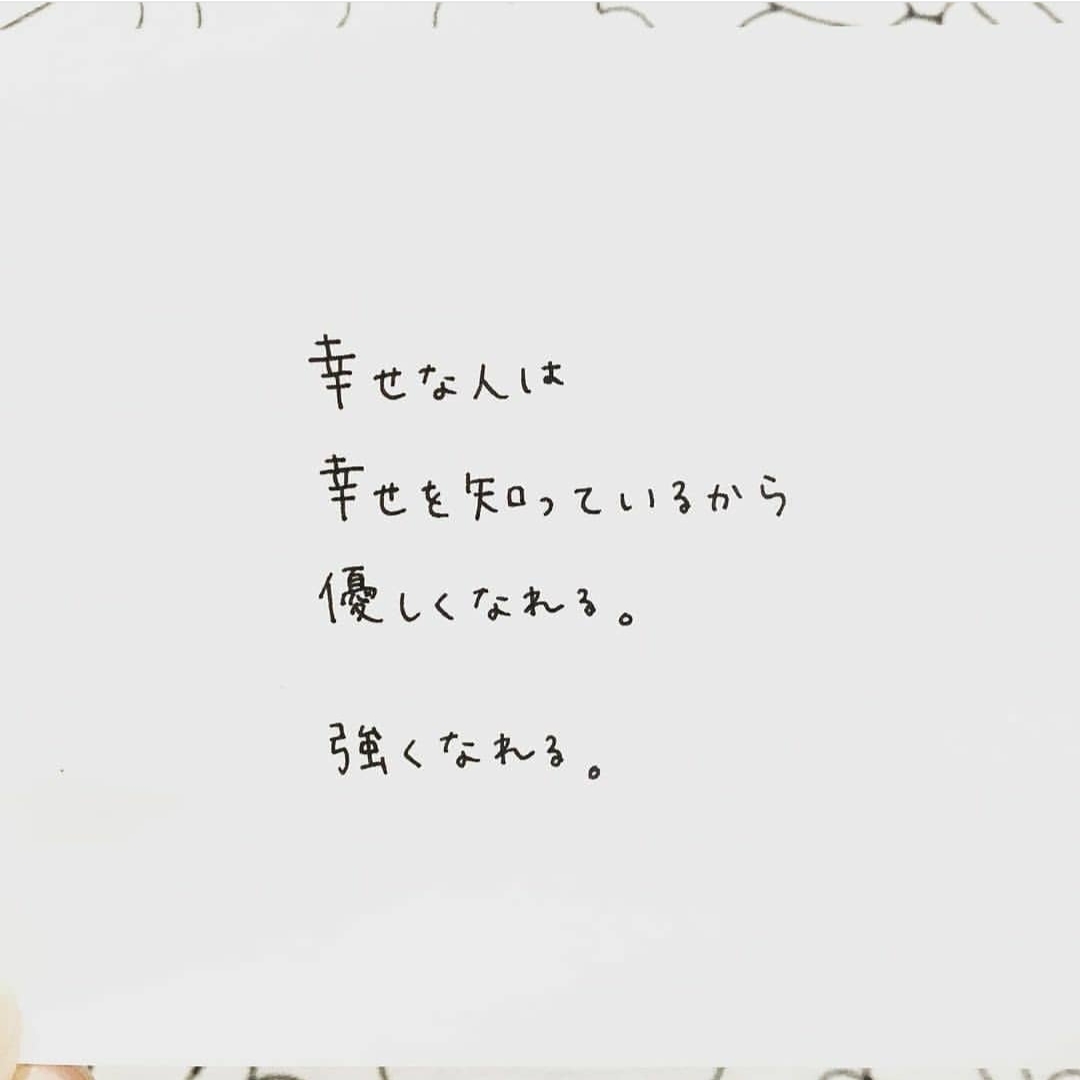 幸せな人は
幸せを知っているから
優しくなれる。
強くなれる。